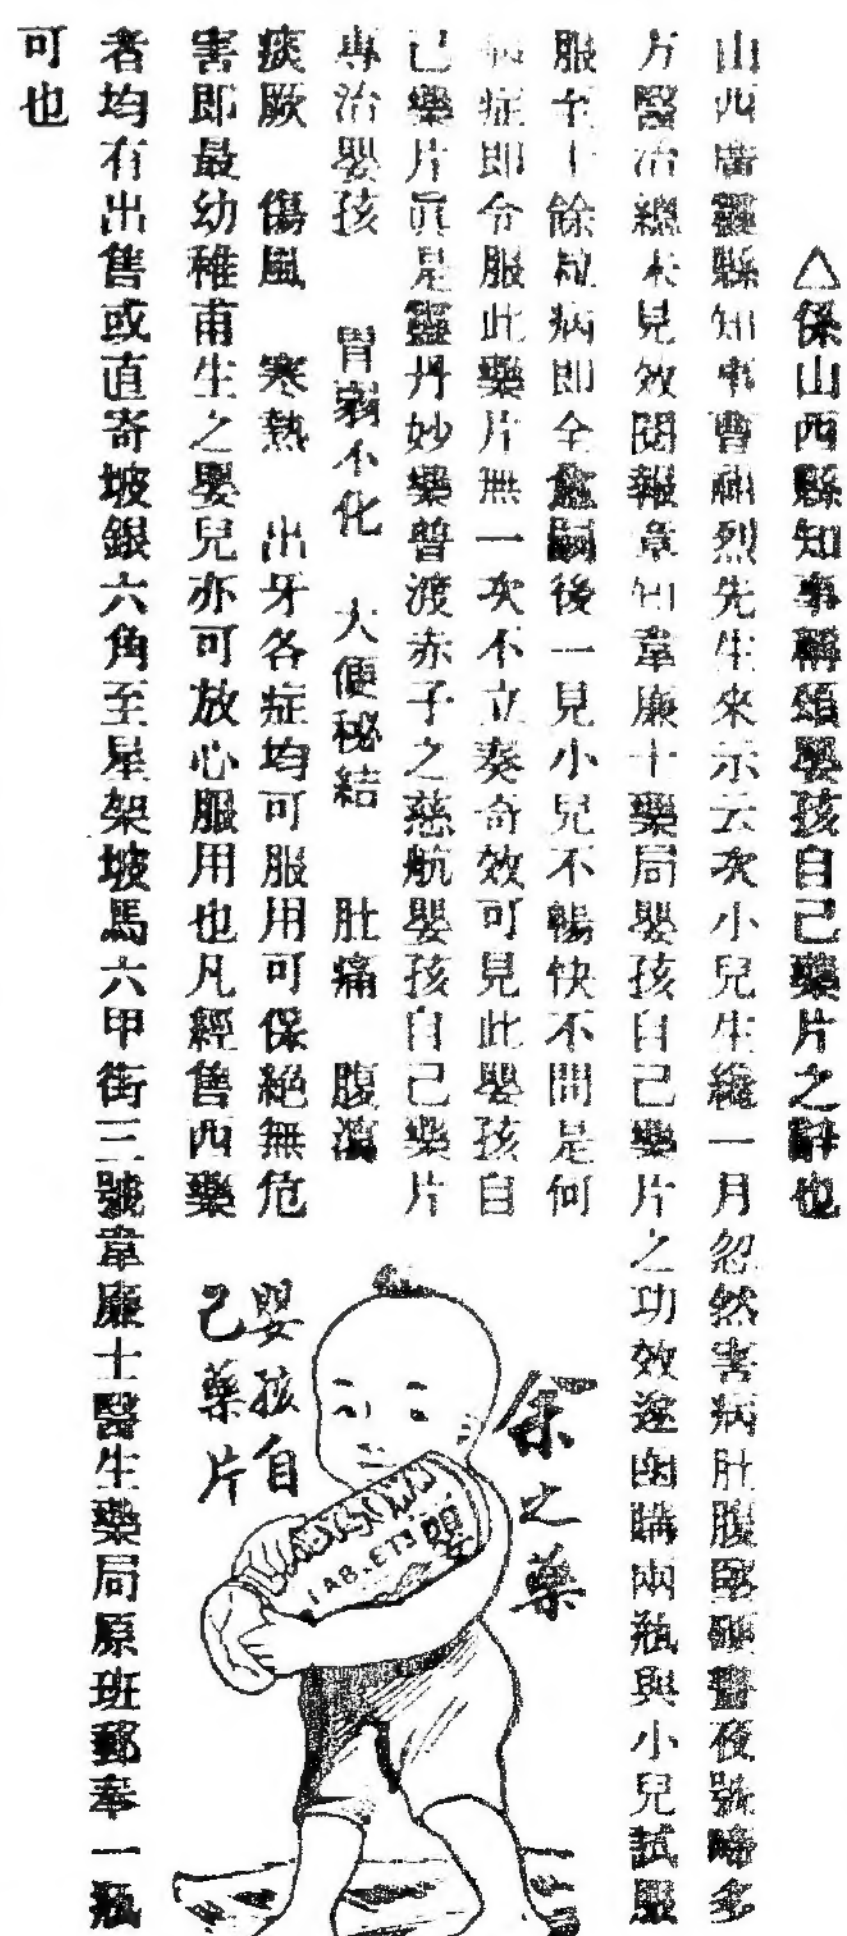 △係山西縣知事稱頌嬰孩自己藥片之辭也
山西廣靈縣知事曹 烈先生來示云次小兒生纔一月忽然害病肚腹堅硬晝夜號啼多
方醫治總未見效閱報章知韋廉士藥局嬰孩自己藥片之功效遂函購兩瓶與小兒試服
服至十餘粒病即全愈嗣後一見小兒不暢快不問是何
病症即令服此藥片無一次不立奏奇效可見此嬰孩自
己藥片眞是靈丹妙藥普渡赤子之慈航嬰孩自己藥片
專治嬰孩 胃弱不化 大便秘結 肚痛 腹瀉
痰厥 傷風 寒熱 出牙各症均可服用可保絕無危
害即最幼稚甫生之嬰兒亦可放心服用也凡經售西藥
者均有出售或直寄坡銀六角至星架坡馬六甲街三號韋廉士醫生藥局原班郵奉一瓶
可也
余之藥
嬰孩自
己藥片
TABLETS